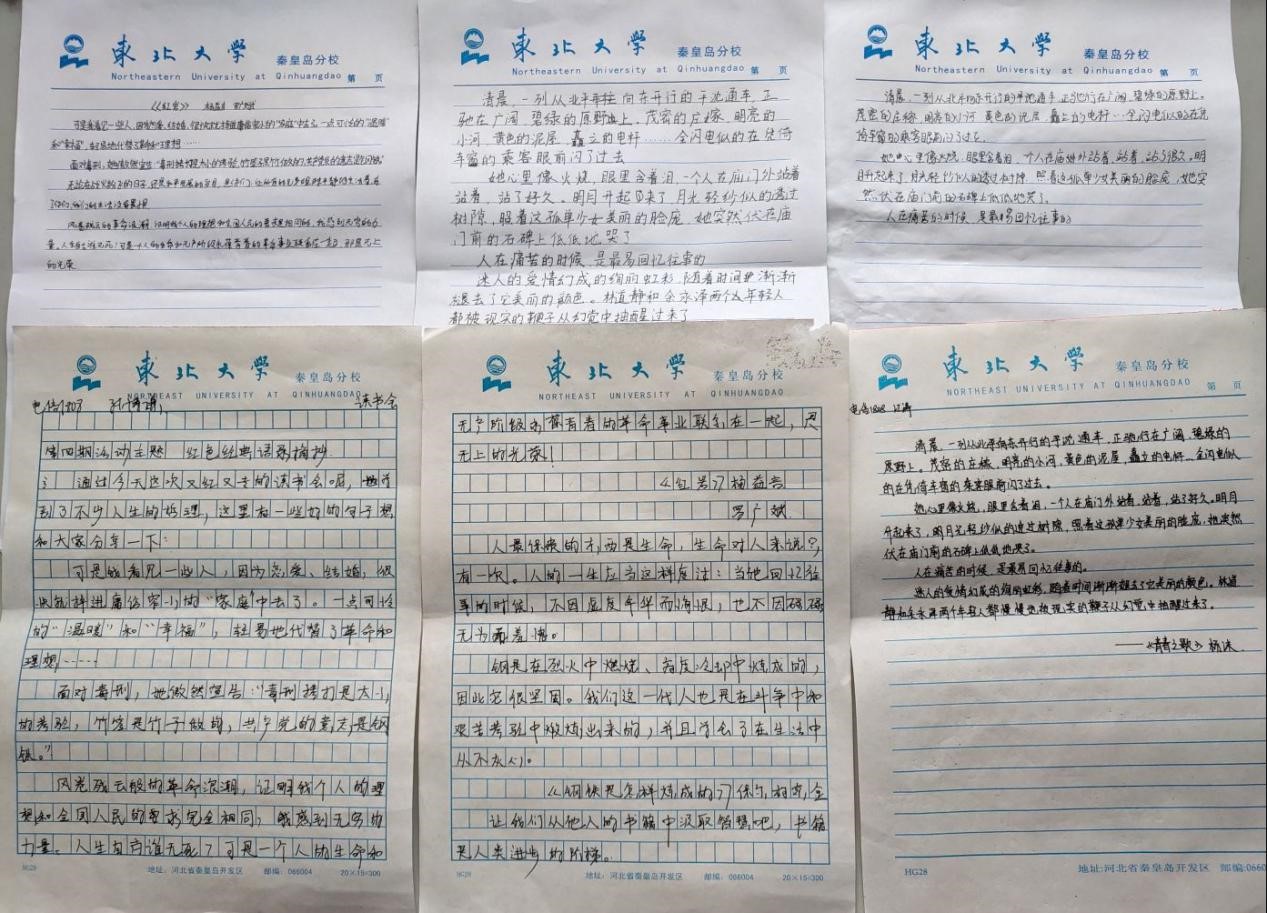 東北大学 秦皇岛分校
Northeastern University at Qinhuangdao 第 页
《红岩》 杨益言 罗广斌
可是我看见一些人，因为恋爱、结婚，很快就掉进庸俗窄小的"家庭"中去了。一点可怜的"温暖"
和"幸福"，轻易地代替了革命和理想……
面对毒刑，她傲然宣告："毒刑拷打是太小的考验，竹签是竹子做的，共产党员的意志是钢铁。"
风卷残云般的革命浪潮，证明我个人的理想和全国人民的要求完全相同，我感到无穷的力
量。人生自古谁无死？可是一个人的生命和无产阶级永葆青春的革命事业联系在一起，那是无上
的光荣
東北大学 秦皇岛分校
Northeastern University at Qinhuangdao 第 页
清晨，一列从北平 向东开行的平沈通车，正
驰在广阔、碧绿的原野上。茂密的庄稼，明亮的
小河，黄色的泥屋，矗立的电杆……全闪电似的在凭倚
车窗的乘客眼前闪了过去
她心里像火烧，眼里含着泪，一个人在庙门外站着
站着，站了好久。明月升起来了，月光轻纱似的透过
树隙，照着这孤单少女美丽的脸庞，她突然伏在庙
门前的石碑上低低地哭了
人在痛苦的时候，是最易回忆往事的
迷人的爱情幻成的绚丽虹彩，随着时间 渐渐
褪去了它美丽的颜色。林道静和余永泽两个 年轻人
都被现实的鞭子从幻觉中抽醒过来了
東北大学 秦皇岛分校
Northeastern University at Qinhuangdao 第 页
清晨，一列从北平向东开行的平沈通车，正驰行在广阔、碧绿的原野上。
茂密的庄稼，明亮的小河，黄色的泥屋，矗立的电杆……全闪电似的在凭
倚车窗的乘客眼前闪了过去。
她心里像火烧，眼里含着泪，一个人在庙门外站着，站着，站了很久。明
月升起来了，月光轻纱似的透过树隙，照着这孤单少女美丽的脸庞，她突
然伏在庙门前的石碑上低低地哭了。
人在痛苦的时候，是最易回忆往事的
東北大学 秦皇岛分校
NORTHEAST UNIVERSITY AT QINHUANGDAO
电信1807 读书会
第四期活动主题 红色经典语录摘抄
通过今天这次又红又专的读书会呢，
到了不少人生的哲理，这里有一些好的句子想
和大家分享一下：
可是我看见一些人，因为恋爱、结婚，很
快就掉进庸俗窄小的"家庭"中去了。一点可怜
的"温暖"和"幸福"，轻易地代替了革命和
理想……
面对毒刑，她傲然宣告："毒刑拷打是太小
的考验，竹签是竹子做的，共产党的意志是钢
铁。"
风卷残云般的革命浪潮，证明我个人的理
想和全国人民的要求完全相同，我感到无穷的
力量。人生自古谁无死？可是一个人的生命和
HG28 地址：河北省秦皇岛开发区 邮编：066004 20×15=300
東北大学 秦皇岛分校
NORTHEAST UNIVERSITY AT QINHUANGDAO
无产阶级永葆青春的革命事业联系在一起，是
无上的光荣！
《红岩》杨益言
罗广斌
人最保贵的东西是生命，生命对人来说只
有一次。人的一生应当这样度过：当他回忆往
事的时候，不因虚度年华而悔恨，也不因碌碌
无为而羞愧。
钢是在烈火中燃烧、高度冷却中炼成的，
因此它很坚固。我们这一代人也是在斗争中和
艰苦考验中煅炼出来的，并且学会了在生活中
从不灰心。
《钢铁是怎样炼成的》保尔·柯察金
让我们从他人的书籍中汲取智慧吧，书籍
是人类进步的阶梯。
HG28 地址：河北省秦皇岛开发区 邮编：066004 20×15=300
東北大学 秦皇岛分校
NORTHEAST UNIVERSITY AT QINHUANGDAO 第 页
电信1808 江涛
清晨，一列从北平向东开行的平沈通车，正驰行在广阔、碧绿的
原野上。茂密的庄稼，明亮的小河，黄色的泥屋，矗立的电杆…全闪电似
的在凭倚车窗的乘客眼前闪了过去。
她心里像火烧，眼里含着泪，一个人在庙门外站着，站着，站了好久。明月
升起来了，明月光轻纱似的透过树隙，照着这孤单少女美丽的脸庞，她突然
伏在庙门前的石碑上低低地哭了。
人在痛苦的时候，是最易回忆往事的。
迷人的爱情幻成的绚丽虹彩，随着时间渐渐褪去了它美丽的颜色。林道
静和余永泽两个年轻人都慢慢地被现实的鞭子从幻觉中抽醒过来了。
——《青春之歌》杨沫
HG28 地址:河北省秦皇岛开发区 邮编:0660